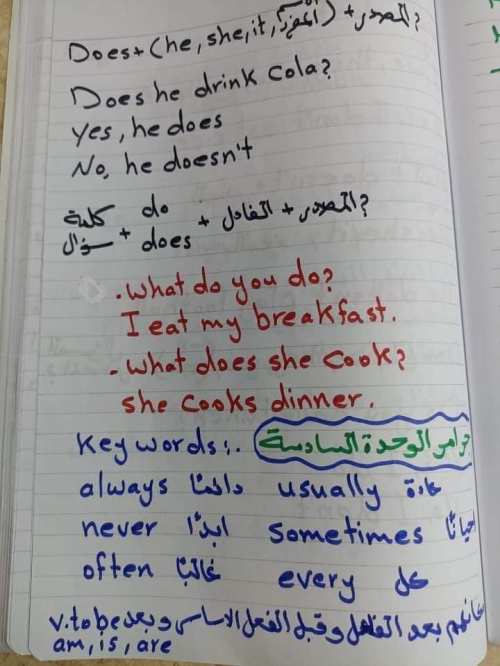 Does + (he, she, it, اسم المفرد) + المصدر?
Does he drink cola?
Yes, he does
No, he doesn't
كلمة سؤال + do does + الفاعل + المصدر?
. What do you do?
I eat my breakfast.
- What does she cook?
she cooks dinner.
Key words:. جرامر الوحدة السادسة
always دائمًا usually عادة
never ابدًا sometimes احيانًا
often غالبًا every كل
مكانهم بعد الفاعل وقبل الفعل الاساسي وبعد v. to be
am, is, are